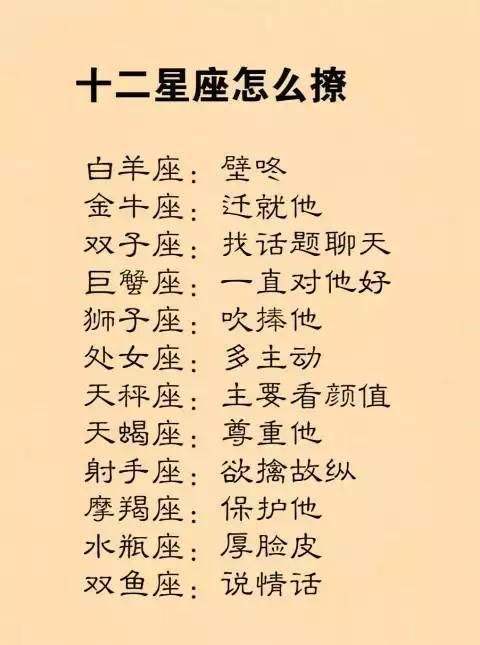 十二星座怎么撩
白羊座：壁咚
金牛座：迁就他
双子座：找话题聊天
巨蟹座：一直对他好
狮子座：吹捧他
处女座：多主动
天秤座：主要看颜值
天蝎座：尊重他
射手座：欲擒故纵
摩羯座：保护他
水瓶座：厚脸皮
双鱼座：说情话